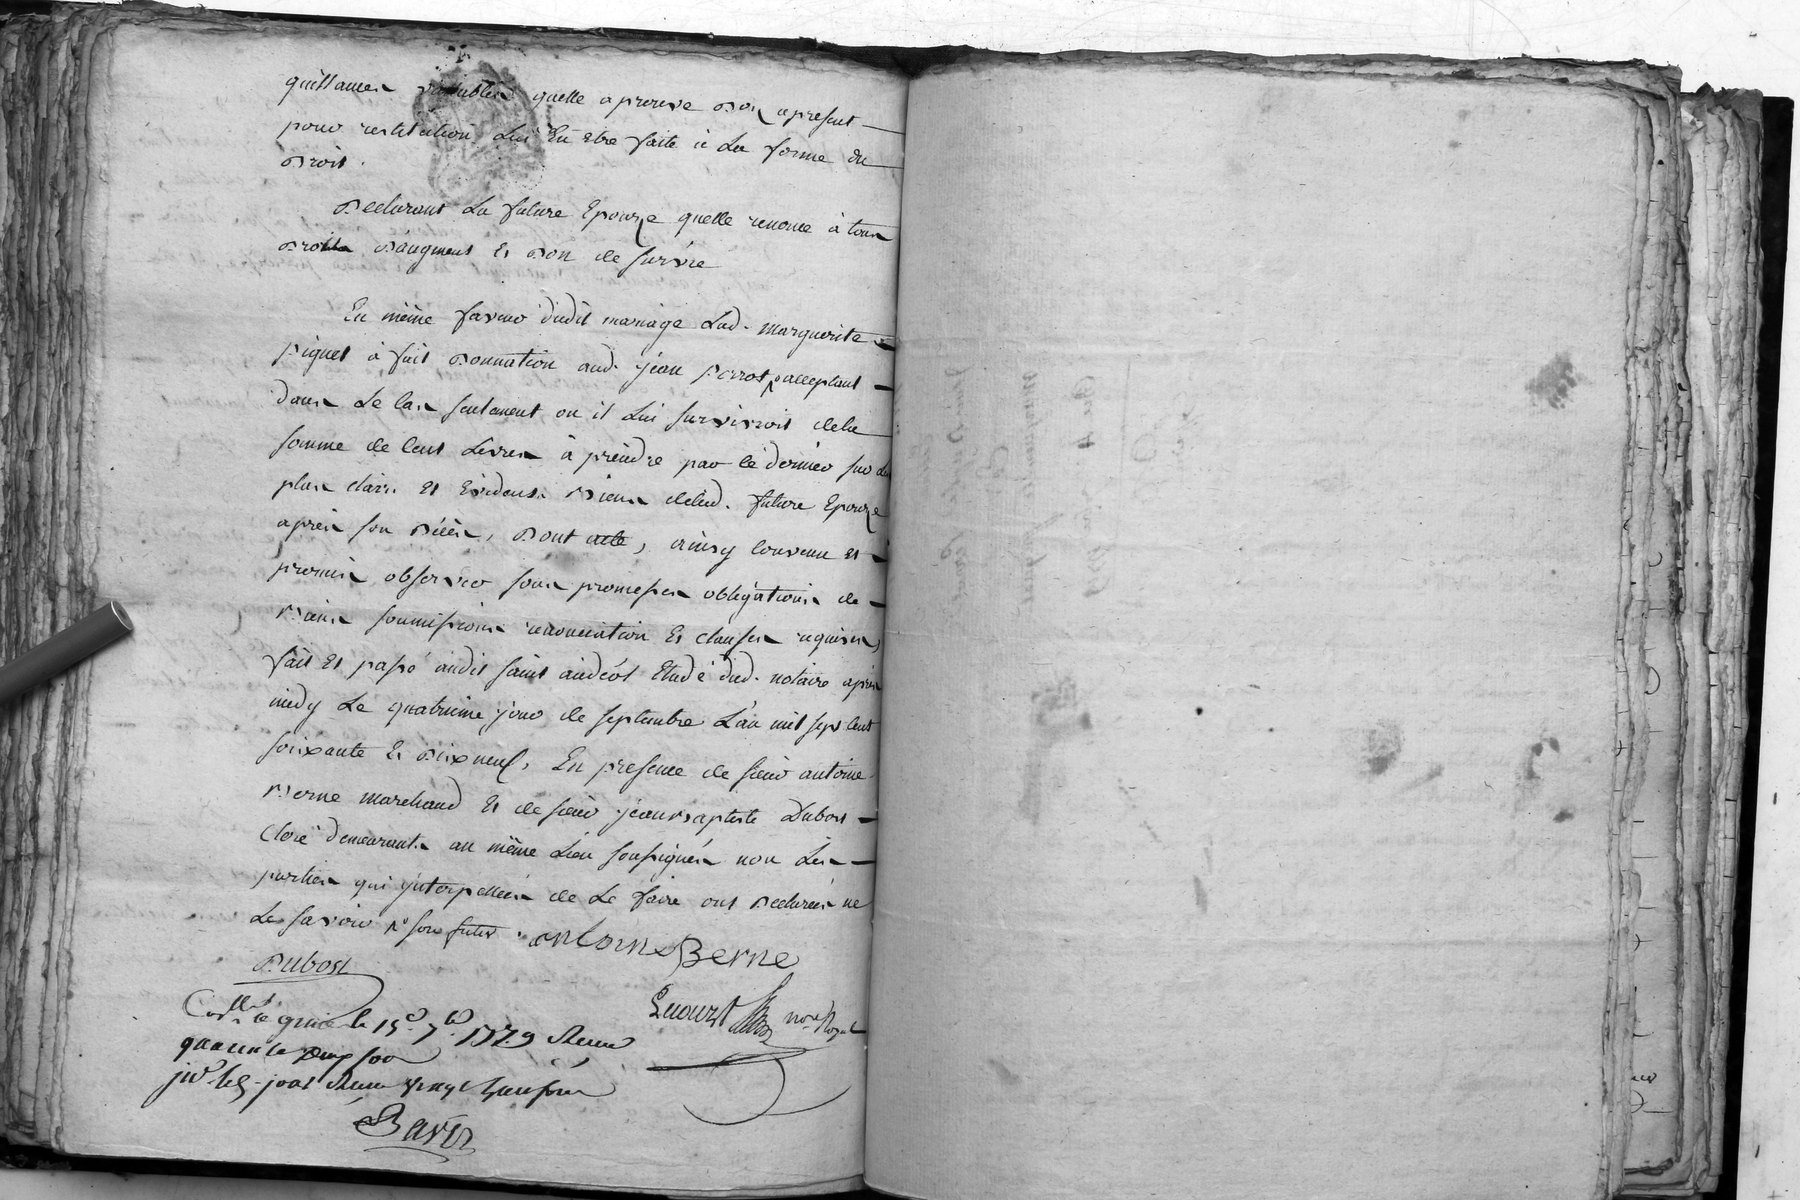 quittances valables quelle aprouve des apresent
pour restitution Lui En etre faite à La forme du
Droit.
Declarant La future Epouze quelle renonce à tous
Droits d'augment Et don de survie
En même faveur dudit mariage Lad. marguerite
piquet à fait Donnation aud. jean perrot acceptant
dans Le Cas seulement ou il Lui survivroit dela
somme de Cent Livres à prendre par le dernier sur Les
plus clairs Et Evidents Biens delad. future Epouze
après son Décès, Dont acte, ainsy Convenu Et
promis observer sous promesses obligations de
Biens soumissions renonciation Et clauses requises,
fait Et passé audit saint andéol Etude dud. notaire après
midy Le quatrieme jour de septembre L'an mil sept Cent
soixante Et Dixneuf, En presence de sieur antoine
Berne marchand Et de sieur jean Baptiste Dubost
Clerc demeurants au même Lieu soussignés non Les
parties qui interpellées de Le faire ont Declarées ne
Le savoir son futur antoine Berne
Dubost
not. Royal
Con.lé à le 15e 7bre 1779 Reçu
quarante sols